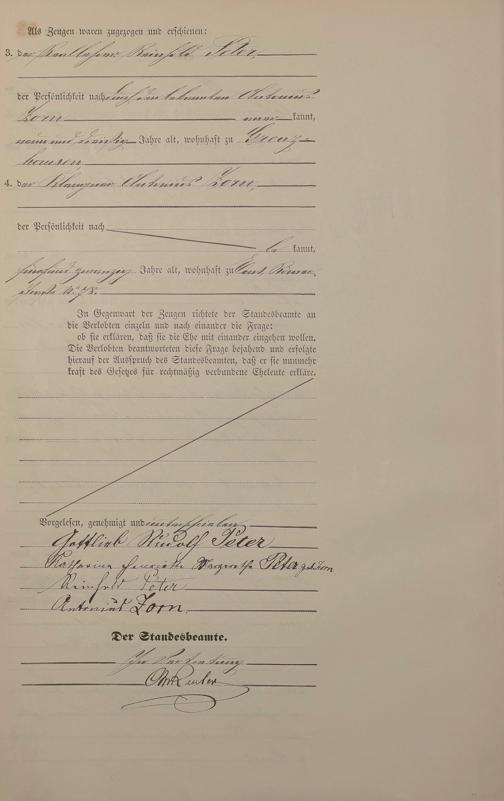 Als Zeugen waren zugezogen und erschienen:
3. der Reinhold Peter,
der Persönlichkeit nach durch den bekannten Antonius
Zorn kannt,
neununddreißig Jahre alt, wohnhaft zu Grenz-
hausen
4. der Antonius Zorn,
der Persönlichkeit nach
be kannt,
fünfundzwanzig Jahre alt, wohnhaft zu
In Gegenwart der Zeugen richtete der Standesbeamte an
die Verlobten einzeln und nach einander die Frage:
ob sie erklären, daß sie die Ehe mit einander eingehen wollen.
Die Verlobten beantworteten diese Frage bejahend und erfolgte
hierauf der Ausspruch des Standesbeamten, daß er sie nunmehr
kraft des Gesetzes für rechtmäßig verbundene Eheleute erkläre.
Vorgelesen, genehmigt und unterschrieben
Gottlieb Rudolf Peter
Katharine Henriette Margarethe Peter geb. Zorn
Reinhold Peter
Antonius Zorn.
Der Standesbeamte.
In Vertretung